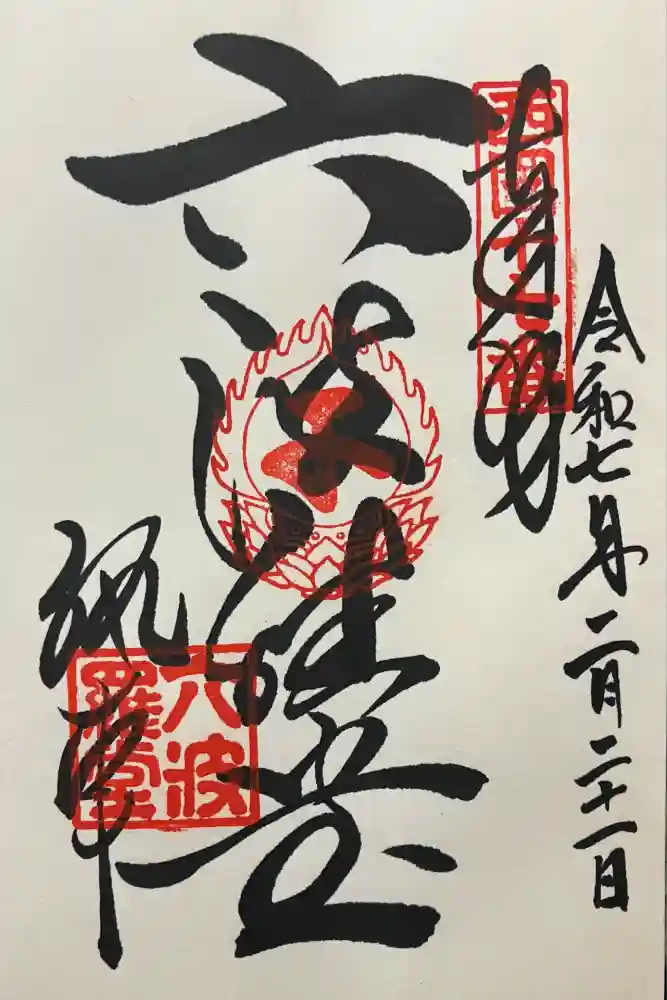 令和七年二月二十一日
奉拝
西国十七番
六波羅堂
六波羅堂